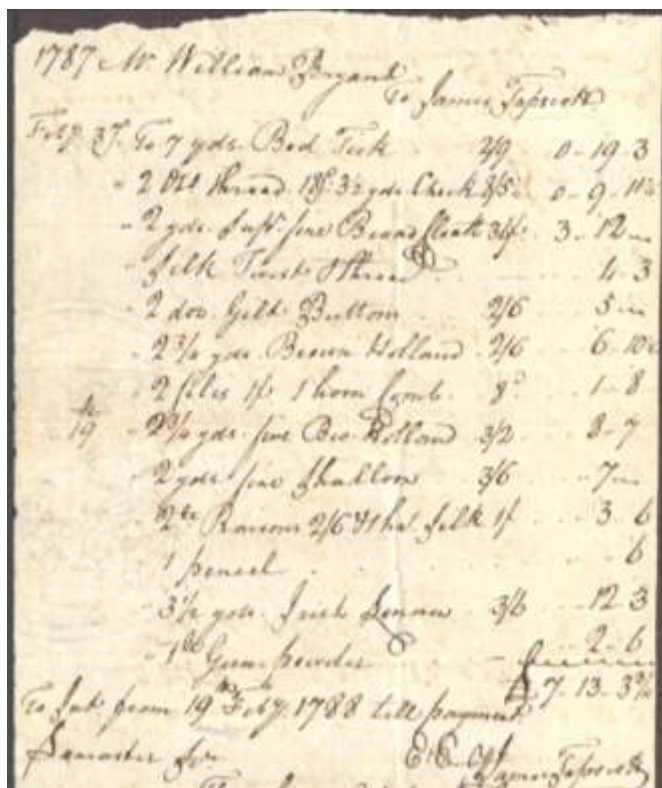 1787 Mr. William Bryant
To James Tapscott
Feby. 3d. To 7 yds. Bed Tick 2/9 0-19-3
" 2 Thread 18d. 3½ yds. Check 0-9-11½
" 2 yds. Supr. fine Broad Cloath 3-12-
" Silk Twist & Thread 4-3
" 2 doz. Gilt Buttons 2/6 5-
" 2¾ yds. Brown Holland 2/6 6-10½
" 2 files 1/ 1 horn Comb 8d 1-8
19 " 2¾ yds. fine Bro. Holland 3/2 8-7
" 2 yds. fine Shalloon 3/6 7-
" 2 Raisons 2/6 silk 1/ 3-6
" 1 pencil 6
" 3½ yds. Irish Linnen 3/6 12-3
" 1 Gun powder 2-6
£ 7-13-3¾
To Int. from 19th Feby. 1788 till payment
Lancaster E: E: James Tapscott